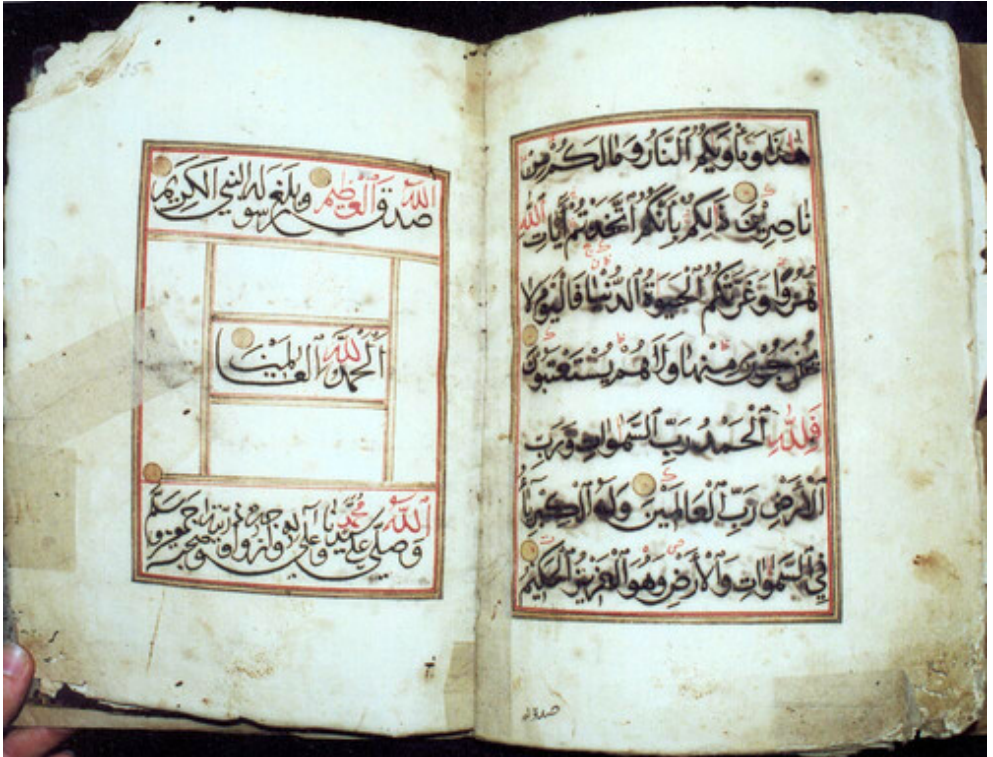 هٰذَا وَمَأْوَيكُمُ ٱلنَّارُ وَمَالَكُمْ مِنْ
نَاصِرِينَ ذَالِكُمْ بِأَنَّكُمُ ٱتَّخَذْتُمْ آيَاتِ ٱللَّهِ
هُزُوًا وَغَرَّتْكُمُ ٱلْحَيَوٰةُ ٱلدُّنْيَا فَالْيَوْمَ لَا
يُخْرَجُونَ مِنْهَا وَلَا هُمْ يُسْتَعْتَبُونَ
فَلِلَّهِ ٱلْحَمْدُ رَبِّ ٱلسَّمٰوَاتِ وَرَبِّ
ٱلْأَرْضِ رَبِّ ٱلْعَالَمِينَ وَلَهُ ٱلْكِبْرِيَآءُ
فِي ٱلسَّمٰوَاتِ وَٱلْأَرْضِ وَهُوَ ٱلْعَزِيزُ ٱلْحَكِيمُ
صدق الله
صدق الله العظيم وبلغ رسوله النبي الكريم
الحمد لله رب العالمين
وصلى الله على سيدنا محمد وعلى آله